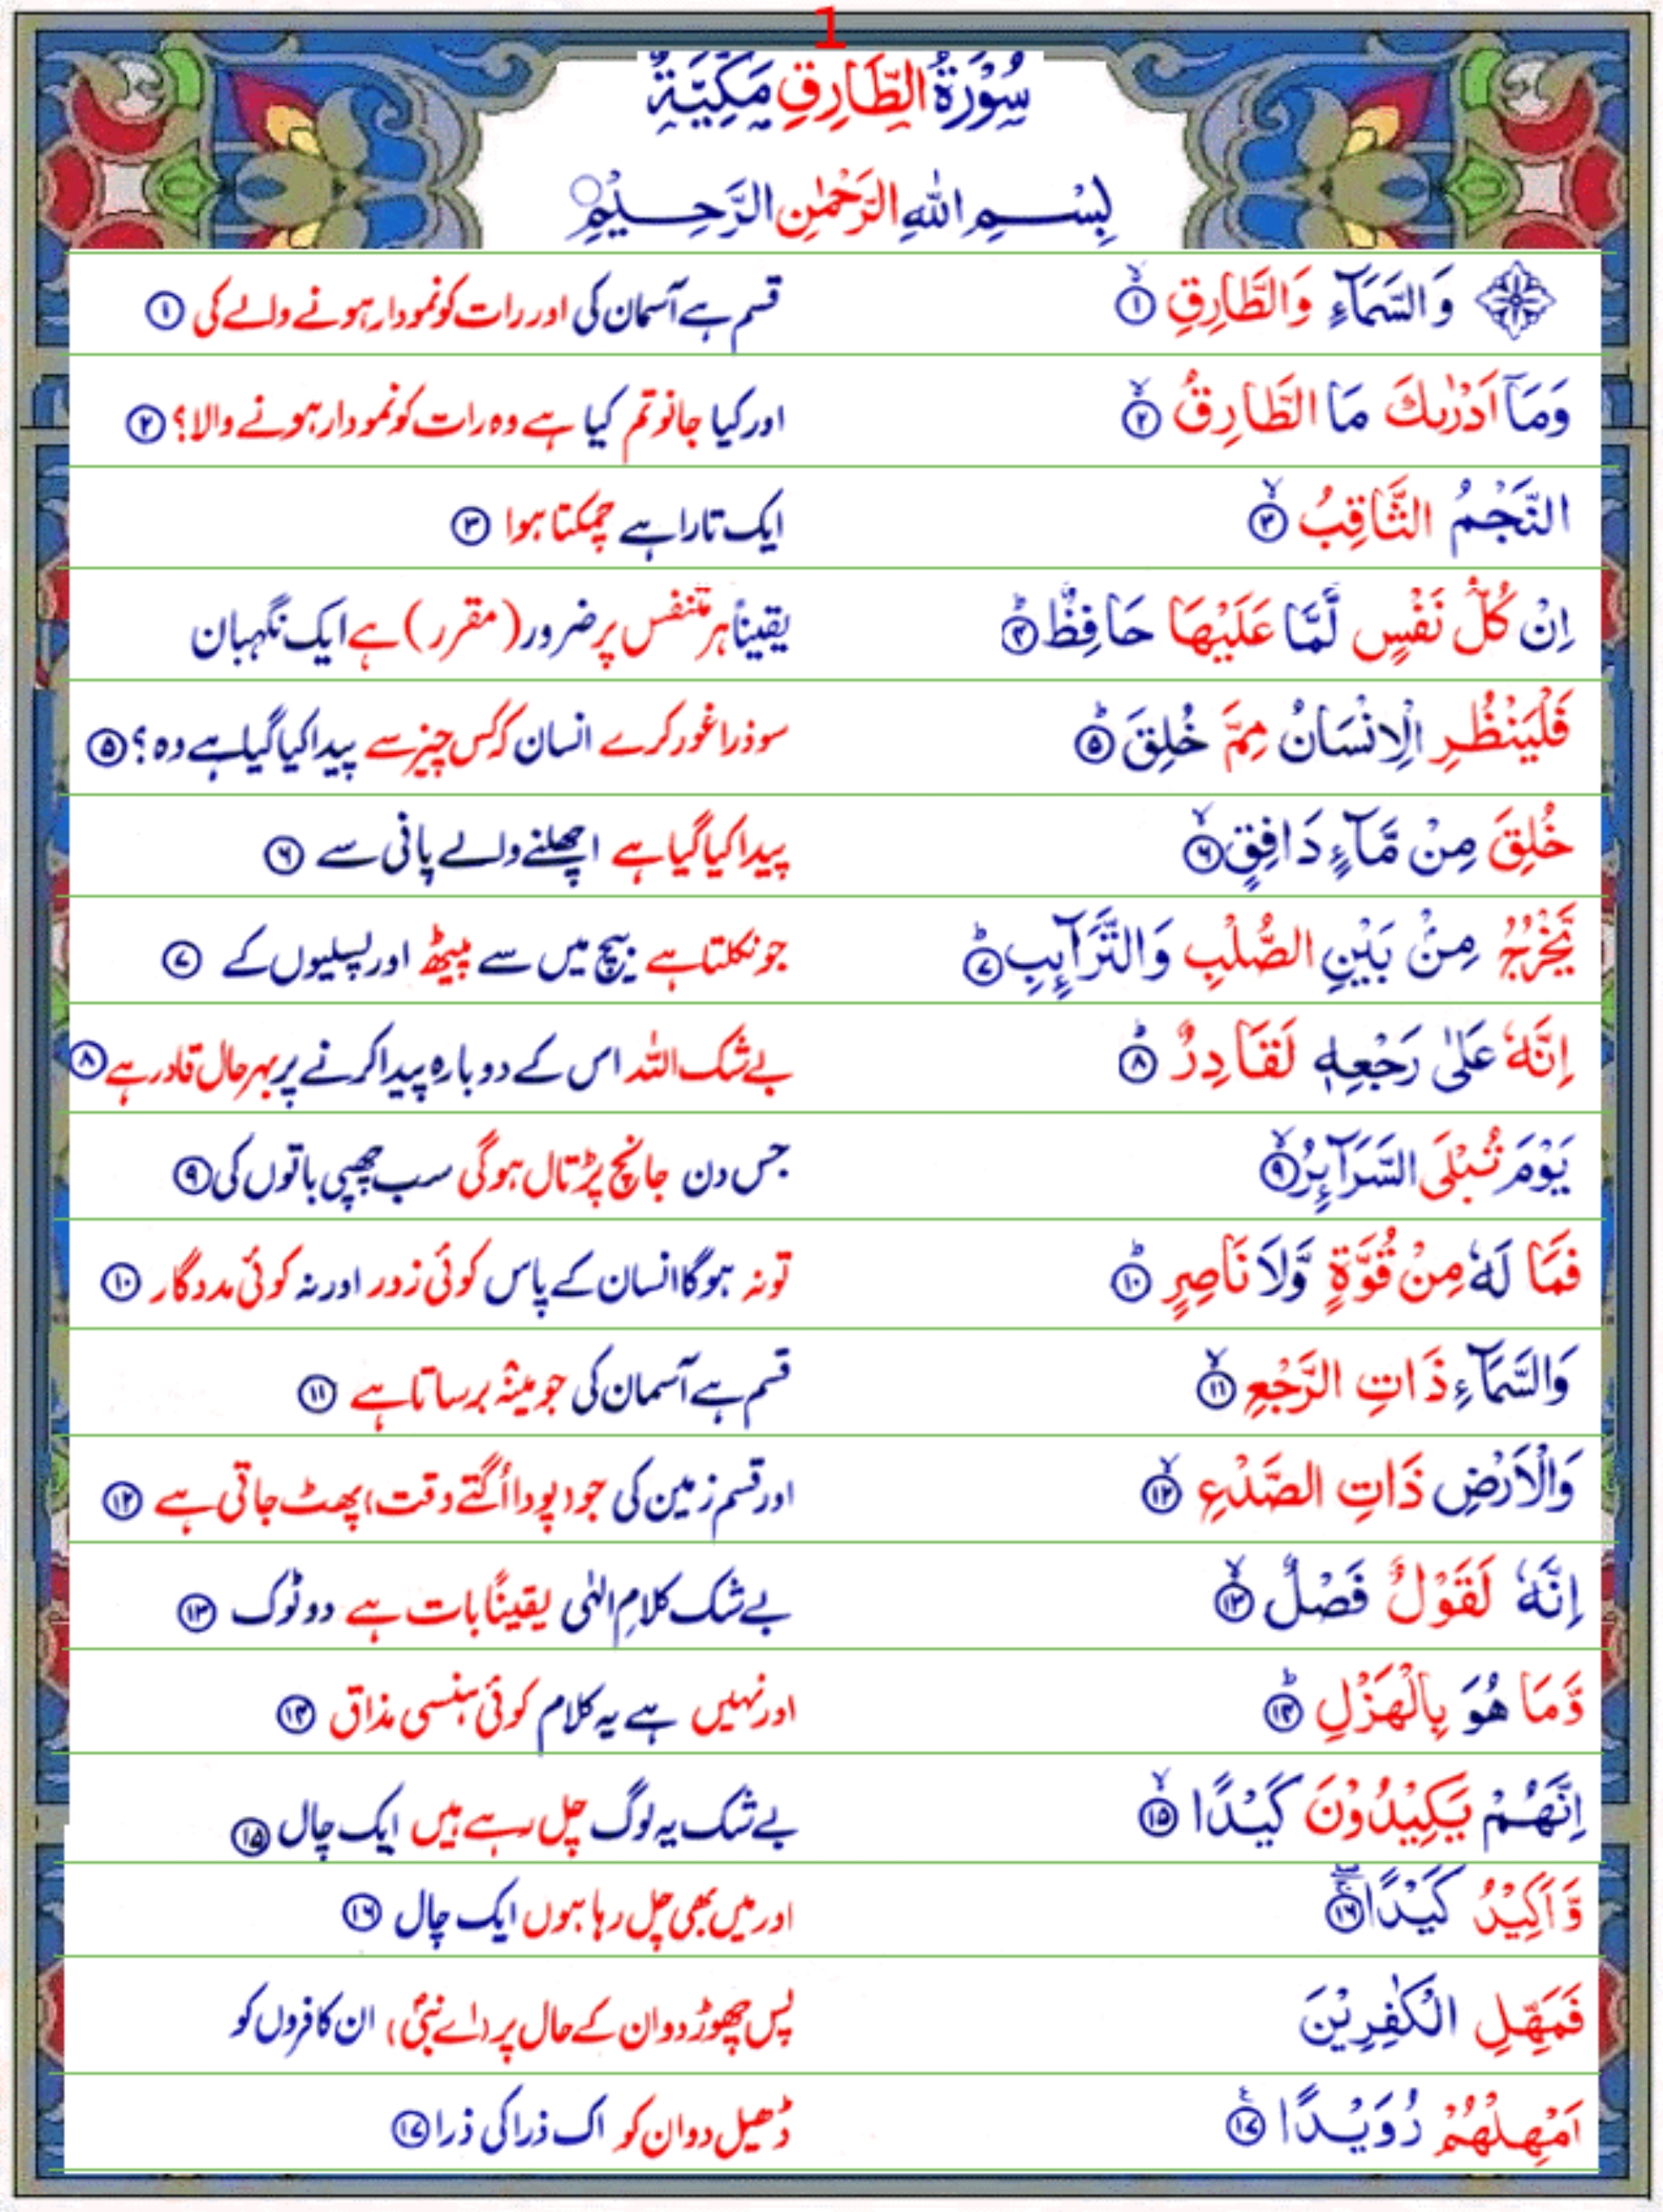 1
سُوْرَةُ الطَّارِقِ مَكِّيَّةٌ
بِسْمِ اللهِ الرَّحْمٰنِ الرَّحِيْمِ
وَالسَّمَآءِ وَالطَّارِقِ ۙ﴿۱﴾ قسم ہے آسمان کی اور رات کو نمودار ہونے والے کی ﴿۱﴾
وَمَآ اَدْرٰىكَ مَا الطَّارِقُ ۙ﴿۲﴾ اور کیا جانو تم کیا ہے وہ رات کو نمودار ہونے والا؟ ﴿۲﴾
النَّجْمُ الثَّاقِبُ ۙ﴿۳﴾ ایک تارا ہے چمکتا ہوا ﴿۳﴾
اِنْ كُلُّ نَفْسٍ لَّمَّا عَلَيْهَا حَافِظٌ ؕ﴿۴﴾ یقیناً ہر متنفس پر ضرور (مقرر) ہے ایک نگہبان
فَلْيَنْظُرِ الْاِنْسَانُ مِمَّ خُلِقَ ؕ﴿۵﴾ سو ذرا غور کرے انسان کہ کس چیز سے پیدا کیا گیا ہے وہ؟ ﴿۵﴾
خُلِقَ مِنْ مَّآءٍ دَافِقٍ ۙ﴿۶﴾ پیدا کیا گیا ہے اچھلنے والے پانی سے ﴿۶﴾
يَّخْرُجُ مِنْۢ بَيْنِ الصُّلْبِ وَالتَّرَآىِٕبِ ؕ﴿۷﴾ جو نکلتا ہے بیچ میں سے پیٹھ اور پسلیوں کے ﴿۷﴾
اِنَّهٗ عَلٰى رَجْعِهٖ لَقَادِرٌ ؕ﴿۸﴾ بے شک اللہ اس کے دوبارہ پیدا کرنے پر بہرحال قادر ہے ﴿۸﴾
يَوْمَ تُبْلَى السَّرَآىِٕرُ ۙ﴿۹﴾ جس دن جانچ پڑتال ہوگی سب چھپی باتوں کی ﴿۹﴾
فَمَا لَهٗ مِنْ قُوَّةٍ وَّلَا نَاصِرٍ ؕ﴿۱۰﴾ تو نہ ہوگا انسان کے پاس کوئی زور اور نہ کوئی مددگار ﴿۱۰﴾
وَالسَّمَآءِ ذَاتِ الرَّجْعِ ۙ﴿۱۱﴾ قسم ہے آسمان کی جو مینہ برساتا ہے ﴿۱۱﴾
وَالْاَرْضِ ذَاتِ الصَّدْعِ ۙ﴿۱۲﴾ اور قسم زمین کی جو (پودا اُگتے وقت) پھٹ جاتی ہے ﴿۱۲﴾
اِنَّهٗ لَقَوْلٌ فَصْلٌ ۙ﴿۱۳﴾ بے شک کلامِ الٰہی یقیناً بات ہے دو ٹوک ﴿۱۳﴾
وَّمَا هُوَ بِالْهَزْلِ ؕ﴿۱۴﴾ اور نہیں ہے یہ کلام کوئی ہنسی مذاق ﴿۱۴﴾
اِنَّهُمْ يَكِيْدُوْنَ كَيْدًا ۙ﴿۱۵﴾ بے شک یہ لوگ چل رہے ہیں ایک چال ﴿۱۵﴾
وَّاَكِيْدُ كَيْدًا ۚۖ﴿۱۶﴾ اور میں بھی چل رہا ہوں ایک چال ﴿۱۶﴾
فَمَهِّلِ الْكٰفِرِيْنَ پس چھوڑ دو ان کے حال پر (اے نبیؐ) ان کافروں کو
اَمْهِلْهُمْ رُوَيْدًا ۧ﴿۱۷﴾ ڈھیل دو ان کو اک ذرا کی ذرا ﴿۱۷﴾